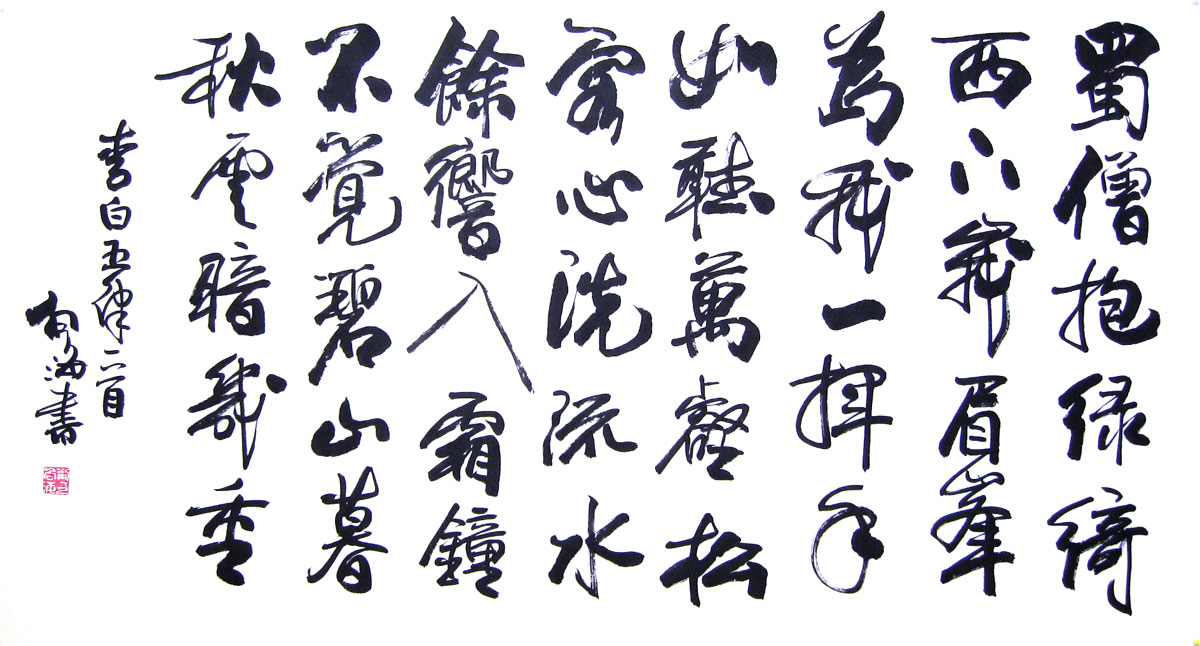 蜀僧抱綠綺
西下峩眉峯
為我一揮手
如聽萬壑松
客心洗流水
餘響入霜鐘
不覺碧山暮
秋雲暗幾重
李白五律一首
海書